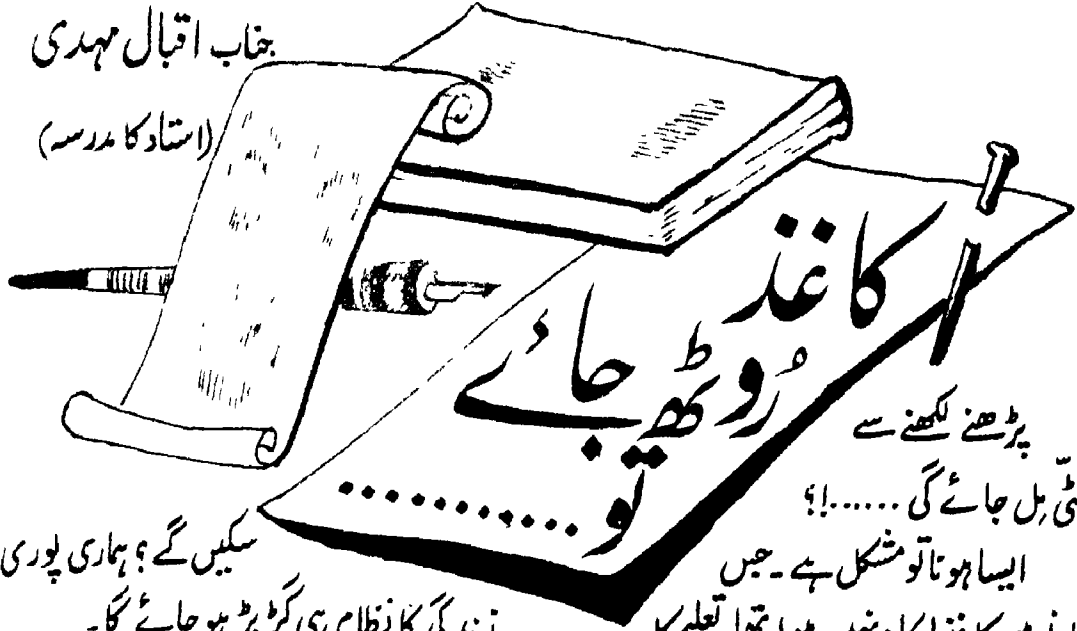 جناب اقبال مہدی
(استاد کا مدرسہ)
کاغذ
رُوٹھ جائے
تو ..........
پڑھنے لکھنے سے
ٹّی مِل جائے گی ......!؟
ایسا ہونا تو مشکل ہے۔ جس
سکیں گے؟ ہماری پوری
زندگی کا نظام ہی گڑبڑ ہو جائے گا۔